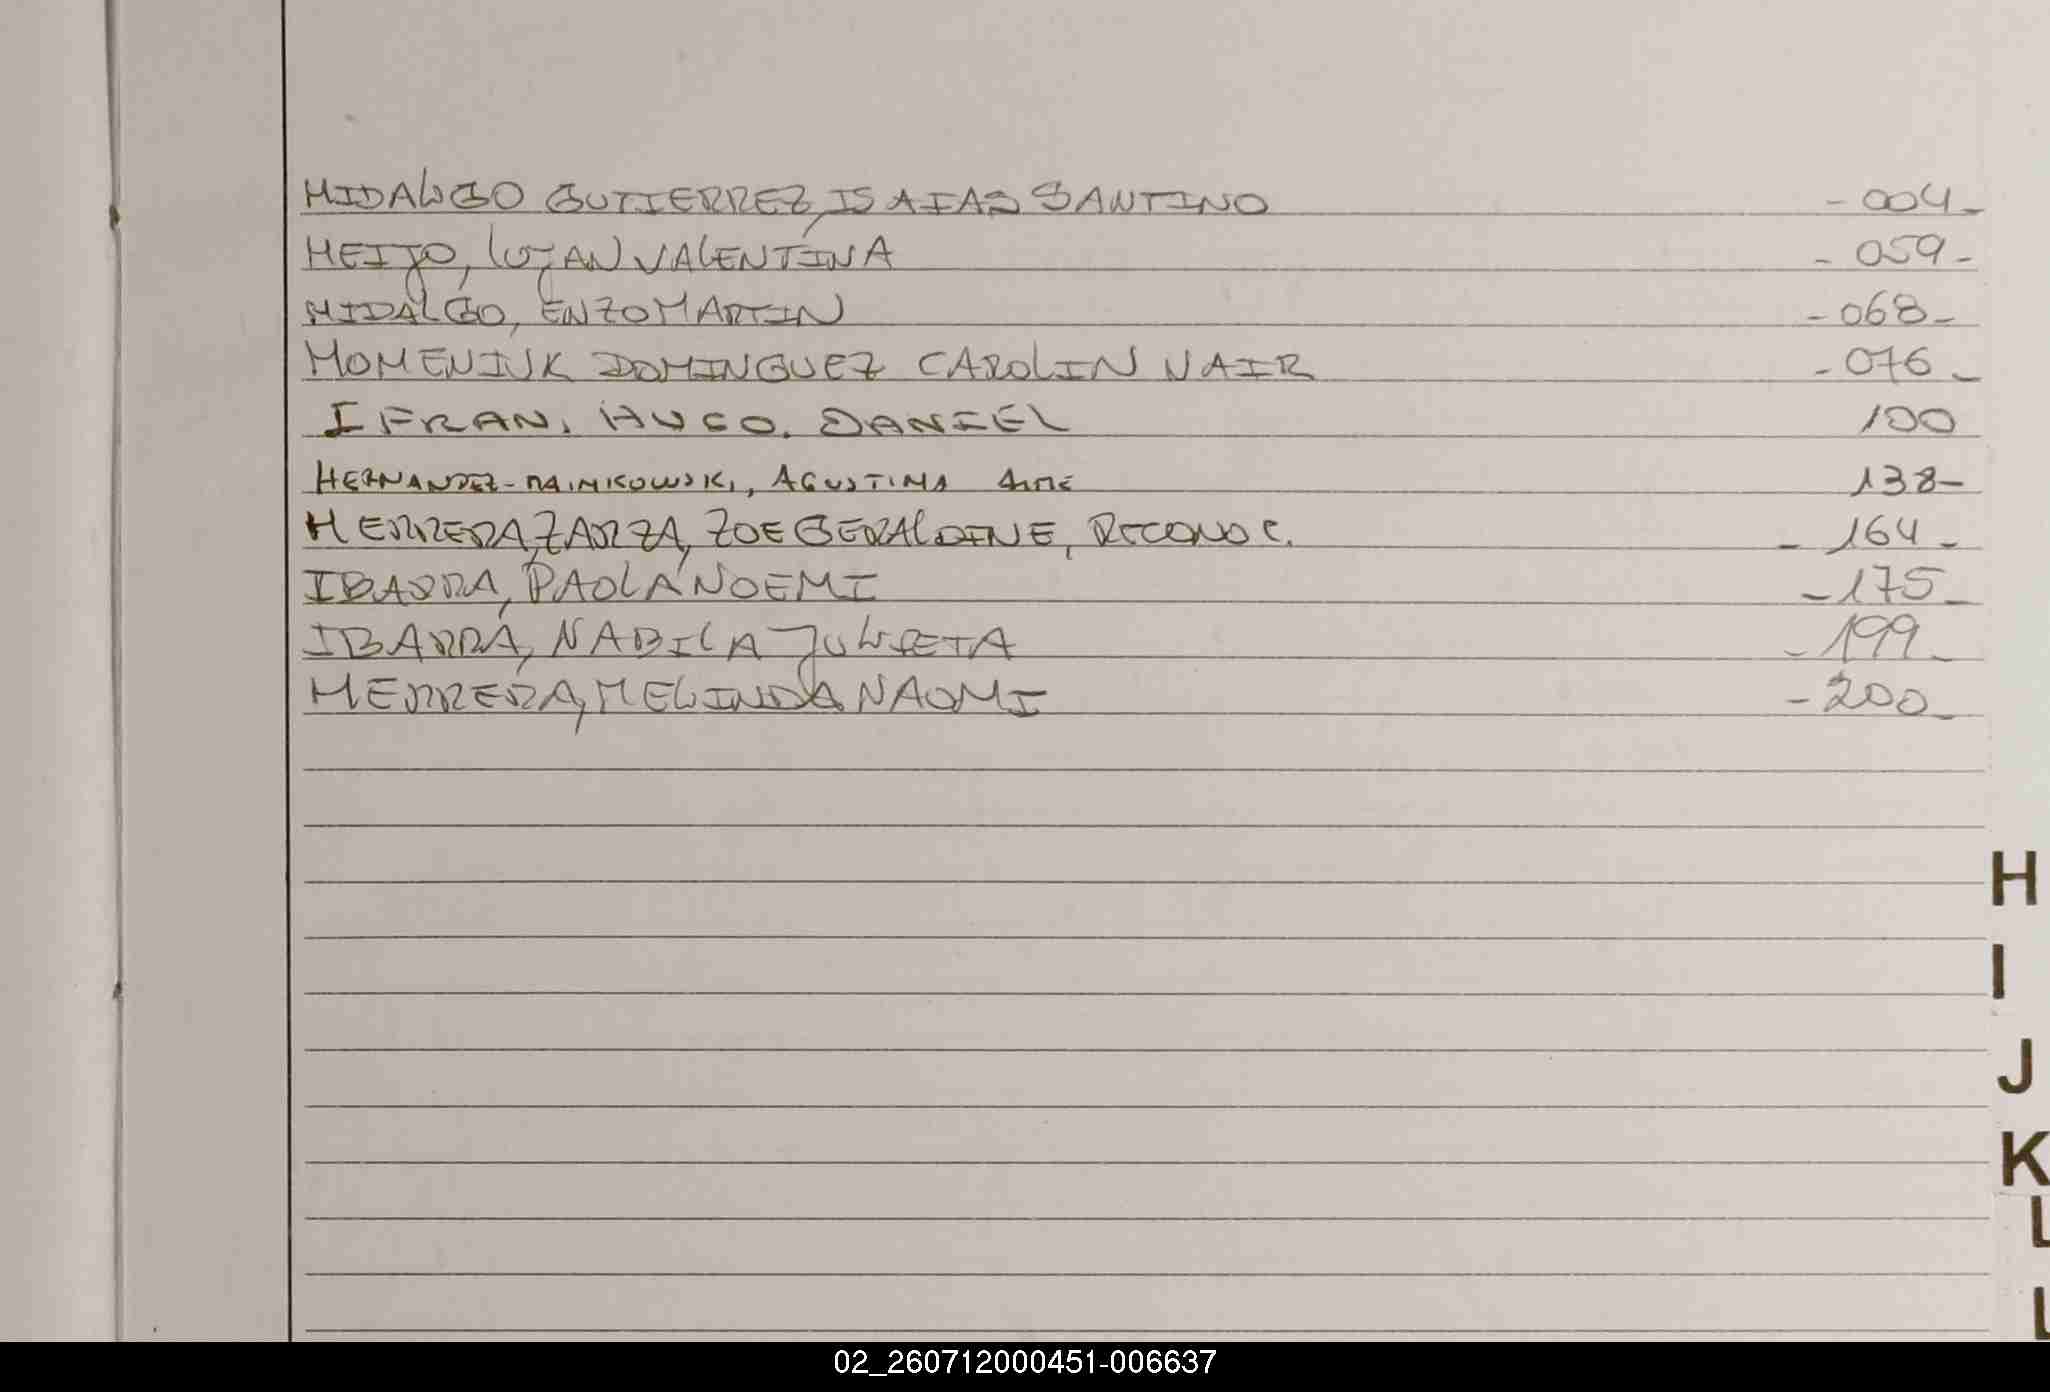 HIDALGO GUTIERREZ, ISAIAS SANTINO - 004 -
HEIJO, LUJAN VALENTINA - 059 -
HIDALGO, ENZO MARTIN - 068 -
HOMENIUK DOMINGUEZ CAROLIN NAIR - 076 -
IFRAN, HUGO. DANIEL 100
HERNANDEZ - , AGUSTINA AIMÉ 138 -
HERRERA, ZARZA, ZOE GERALDINE, RECONOC. - 164 -
IBARRA, PAOLA NOEMI - 175 -
IBARRA, NABILA JULIETA - 199 -
HERRERA, MELINDA NAOMI - 200 -
H
I
J
K
L
L
02_260712000451-006637